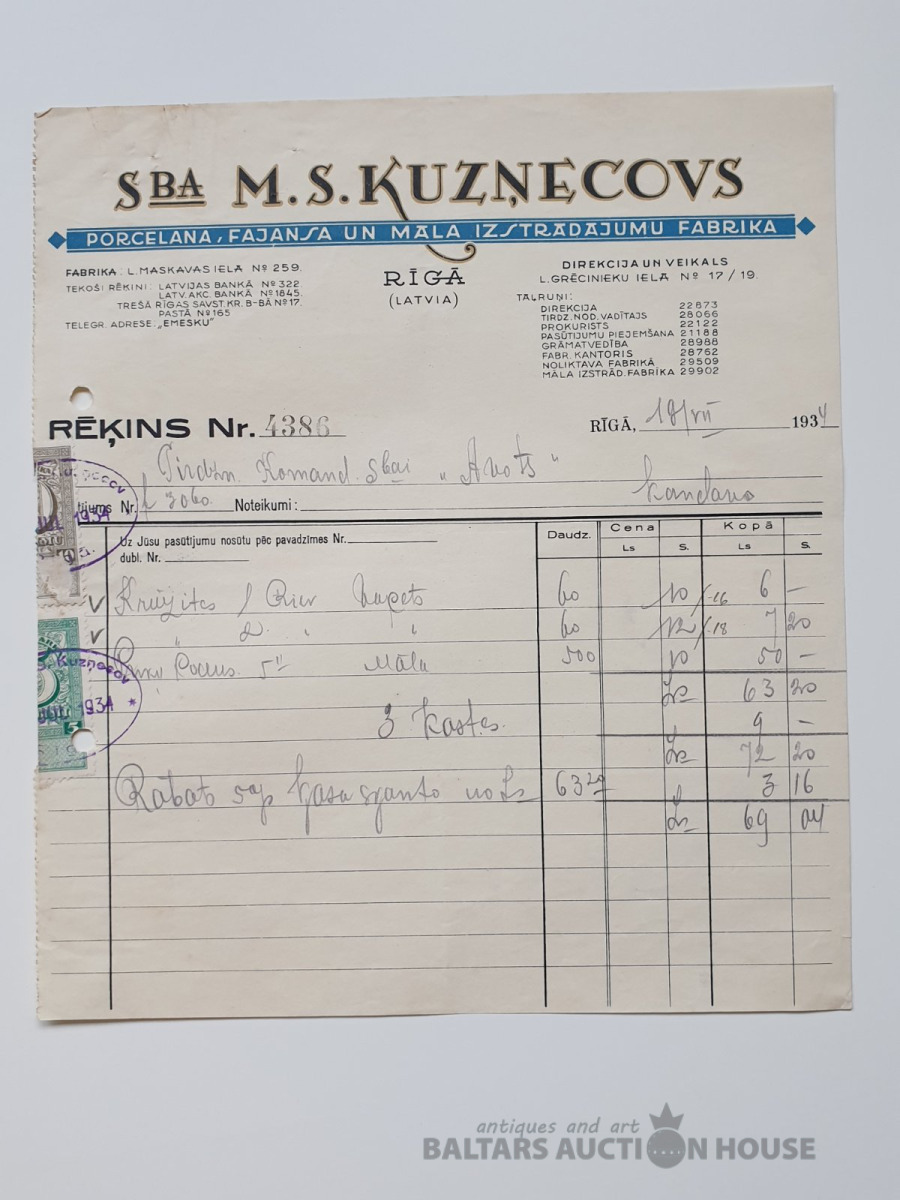 SBA M.S. KUZŅECOVS
PORCELANA, FAJANSA UN MĀLA IZSTRĀDĀJUMU FABRIKA
FABRIKA: L. MASKAVAS IELĀ № 259.
TEKOŠI RĒĶINI: LATVIJAS BANKĀ № 322.
LATV. AKC. BANKĀ № 1845.
TREŠĀ RĪGAS SAVST. KR. B-BĀ № 17.
PASTĀ № 165
TELEGR. ADRESE: „EMESKU"
RĪGĀ
(LATVIA)
DIREKCIJA UN VEIKALS
L. GRĒCINIEKU IELĀ № 17/19.
TĀLRUŅI:
DIREKCIJA 22873
TIRDZ. NOD. VADĪTAJS 28066
PROKURISTS 22122
PASŪTĪJUMU PIEJEMŠANA 21188
GRĀMATVEDĪBA 28988
FABR. KANTORIS 28762
NOLIKTAVA FABRIKĀ 29509
MĀLA IZSTRĀD. FABRIKA 29902
RĒĶINS Nr. 4386
RĪGĀ, 18/VII 1934
Tirdzn. Komand. Sbai „Avots"
Kandavā
jums Nr. 3060. Noteikumi:
Uz Jūsu pasūtijumu nosūtu pēc pavadzīmes Nr.
dubl. Nr.
Daudz. Cena Kopā
Ls S. Ls S.
60 10 -.16 6 —
" 2. " " 60 12 -.18 7 20
5" Māla 500 10 50 —
Ls 63 20
3 kastes. 9 —
Ls 72 20
Rabats 5% no Ls 63 20 3 16
Ls 69 04
Kuzņecov
1934
antiques and art
BALTARS AUCTION HOUSE